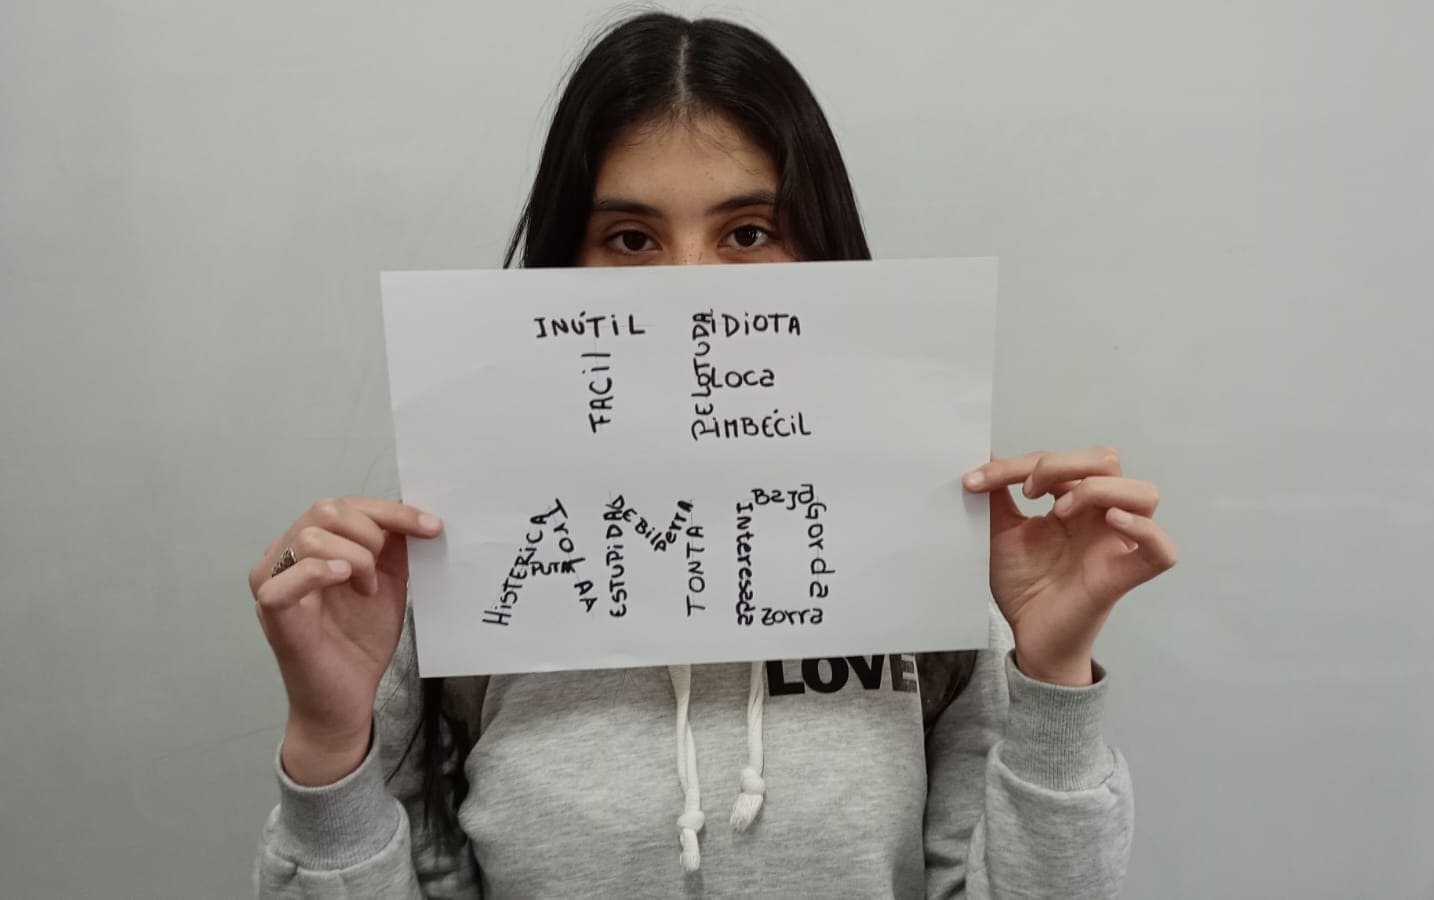 INÚTIL
FACil
PELOTUDA
iDiOTA
Loca
iMBÉCiL
HiSTÉRiCA
PUTA
ESTUPiDA
DEBil
perra
TONTA
Interesada
Baja
Gorda
zorra
LOVE